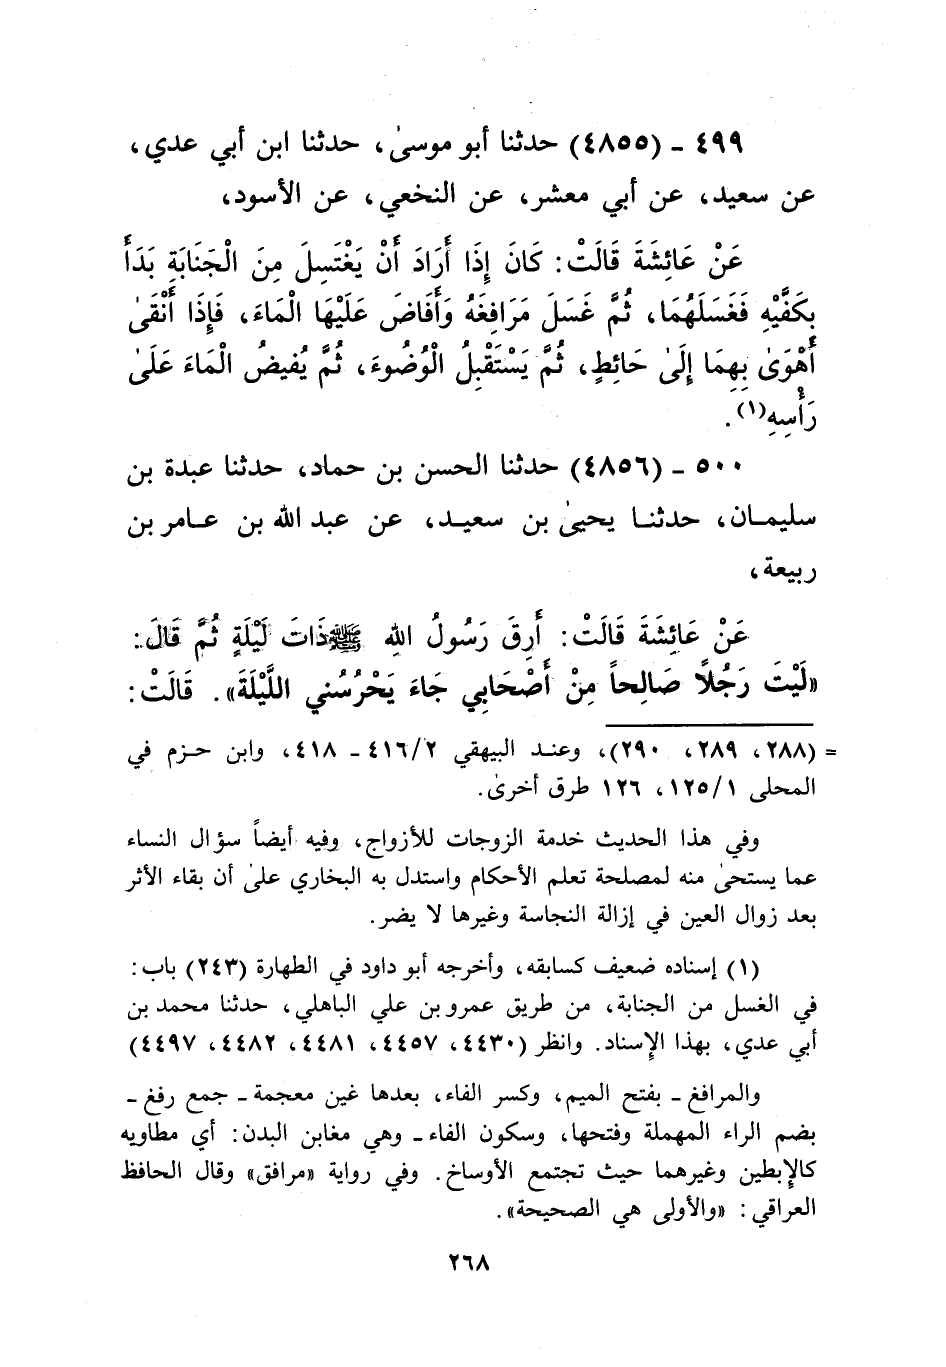 ٤٩٩ - (٤٨٥٥) حدثنا أبو موسىٰ، حدثنا ابن أبي عدي،
عن سعيد، عن أبي معشر، عن النخعي، عن الأسود،
عَنْ عَائِشَةَ قَالَتْ: كَانَ إِذَا أَرَادَ أَنْ يَغْتَسِلَ مِنَ الْجَنَابَةِ بَدَأَ
بِكَفَّيْهِ فَغَسَلَهُمَا، ثُمَّ غَسَلَ مَرَافِغَهُ وَأَفَاضَ عَلَيْهَا الْمَاءَ، فَإِذَا أَنْقَىٰ
أَهْوَىٰ بِهِمَا إِلَىٰ حَائِطٍ، ثُمَّ يَسْتَقْبِلُ الْوُضُوءَ، ثُمَّ يُفيضُ الْمَاءَ عَلَىٰ
رَأْسِهِ(١).
٥٠٠ - (٤٨٥٦) حدثنا الحسن بن حماد، حدثنا عبدة بن
سليمـان، حدثنـا يحيىٰ بن سعيـد، عن عبد الله بن عـامر بن
ربيعة،
عَنْ عَائِشَةَ قَالَتْ: أَرِقَ رَسُولُ اللهِ ﷺ ذَاتَ لَيْلَةٍ ثُمَّ قَالَ:
«لَيْتَ رَجُلاً صَالِحاً مِنْ أَصْحَابِي جَاءَ يَحْرُسُنِي اللَّيْلَةَ». قَالَتْ:
= (٢٨٨، ٢٨٩، ٢٩٠)، وعنـد البيهقي ٤١٦/٢ - ٤١٨، وابن حـزم في
المحلى ١٢٥/١، ١٢٦ طرق أخرىٰ.
وفي هذا الحديث خدمة الزوجات للأزواج، وفيه أيضاً سؤال النساء
عما يستحىٰ منه لمصلحة تعلم الأحكام واستدل به البخاري علىٰ أن بقاء الأثر
بعد زوال العين في إزالة النجاسة وغيرها لا يضر.
(١) إسناده ضعيف كسابقه، وأخرجه أبو داود في الطهارة (٢٤٣) باب:
في الغسل من الجنابة، من طريق عمرو بن علي الباهلي، حدثنا محمد بن
أبي عدي، بهذا الإسناد. وانظر (٤٤٣٠، ٤٤٥٧، ٤٤٨١، ٤٤٨٢، ٤٤٩٧)
والمرافغ - بفتح الميم، وكسر الفاء، بعدها غين معجمة - جمع رفغ -
بضم الراء المهملة وفتحها، وسكون الفاء - وهي مغابن البدن: أي مطاويه
كالإبطين وغيرهما حيث تجتمع الأوساخ. وفي رواية «مرافق» وقال الحافظ
العراقي: «والأولى هي الصحيحة».
٢٦٨